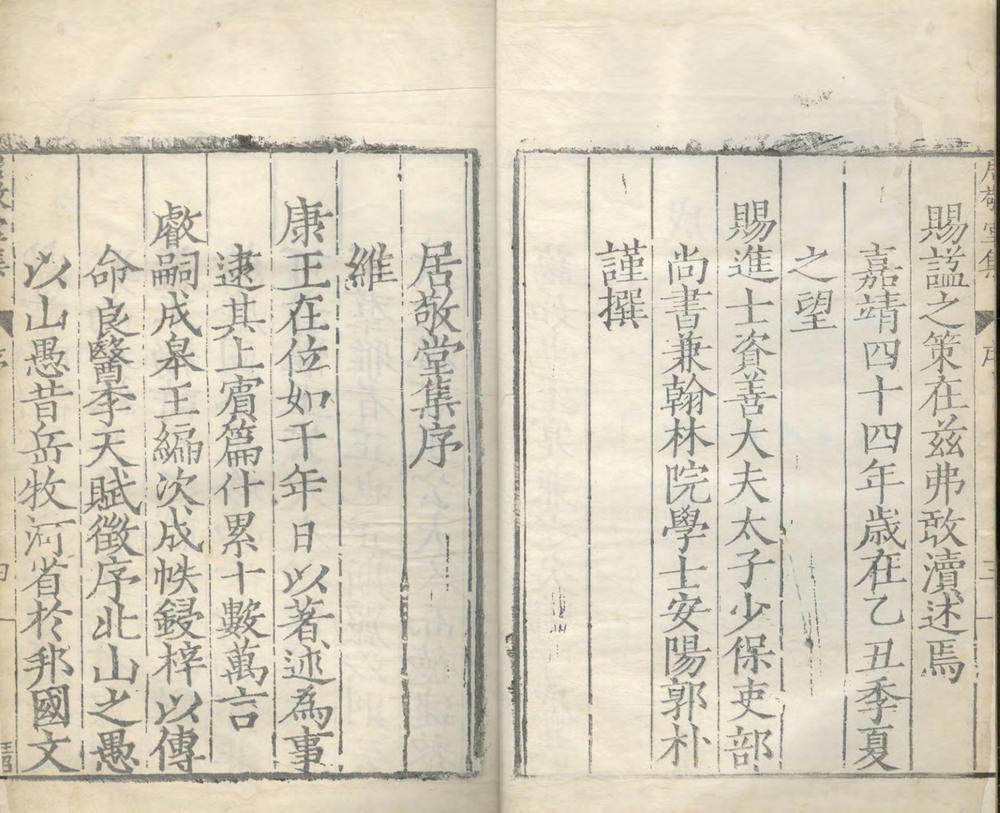 賜諡之策在茲弗敢瀆述焉
嘉靖四十四年歲在乙丑季夏
之望
賜進士資善大夫太子少保吏部
尚書兼翰林院學士安陽郭朴
謹撰
居敬堂集序
維
康王在位如干年日以著述為事
逮其上賓篇什累十數萬言
睿嗣成皋王編次成帙鋟梓以傳
命良醫李天賦徵序北山之愚
以山愚昔岳牧河省於邦國文